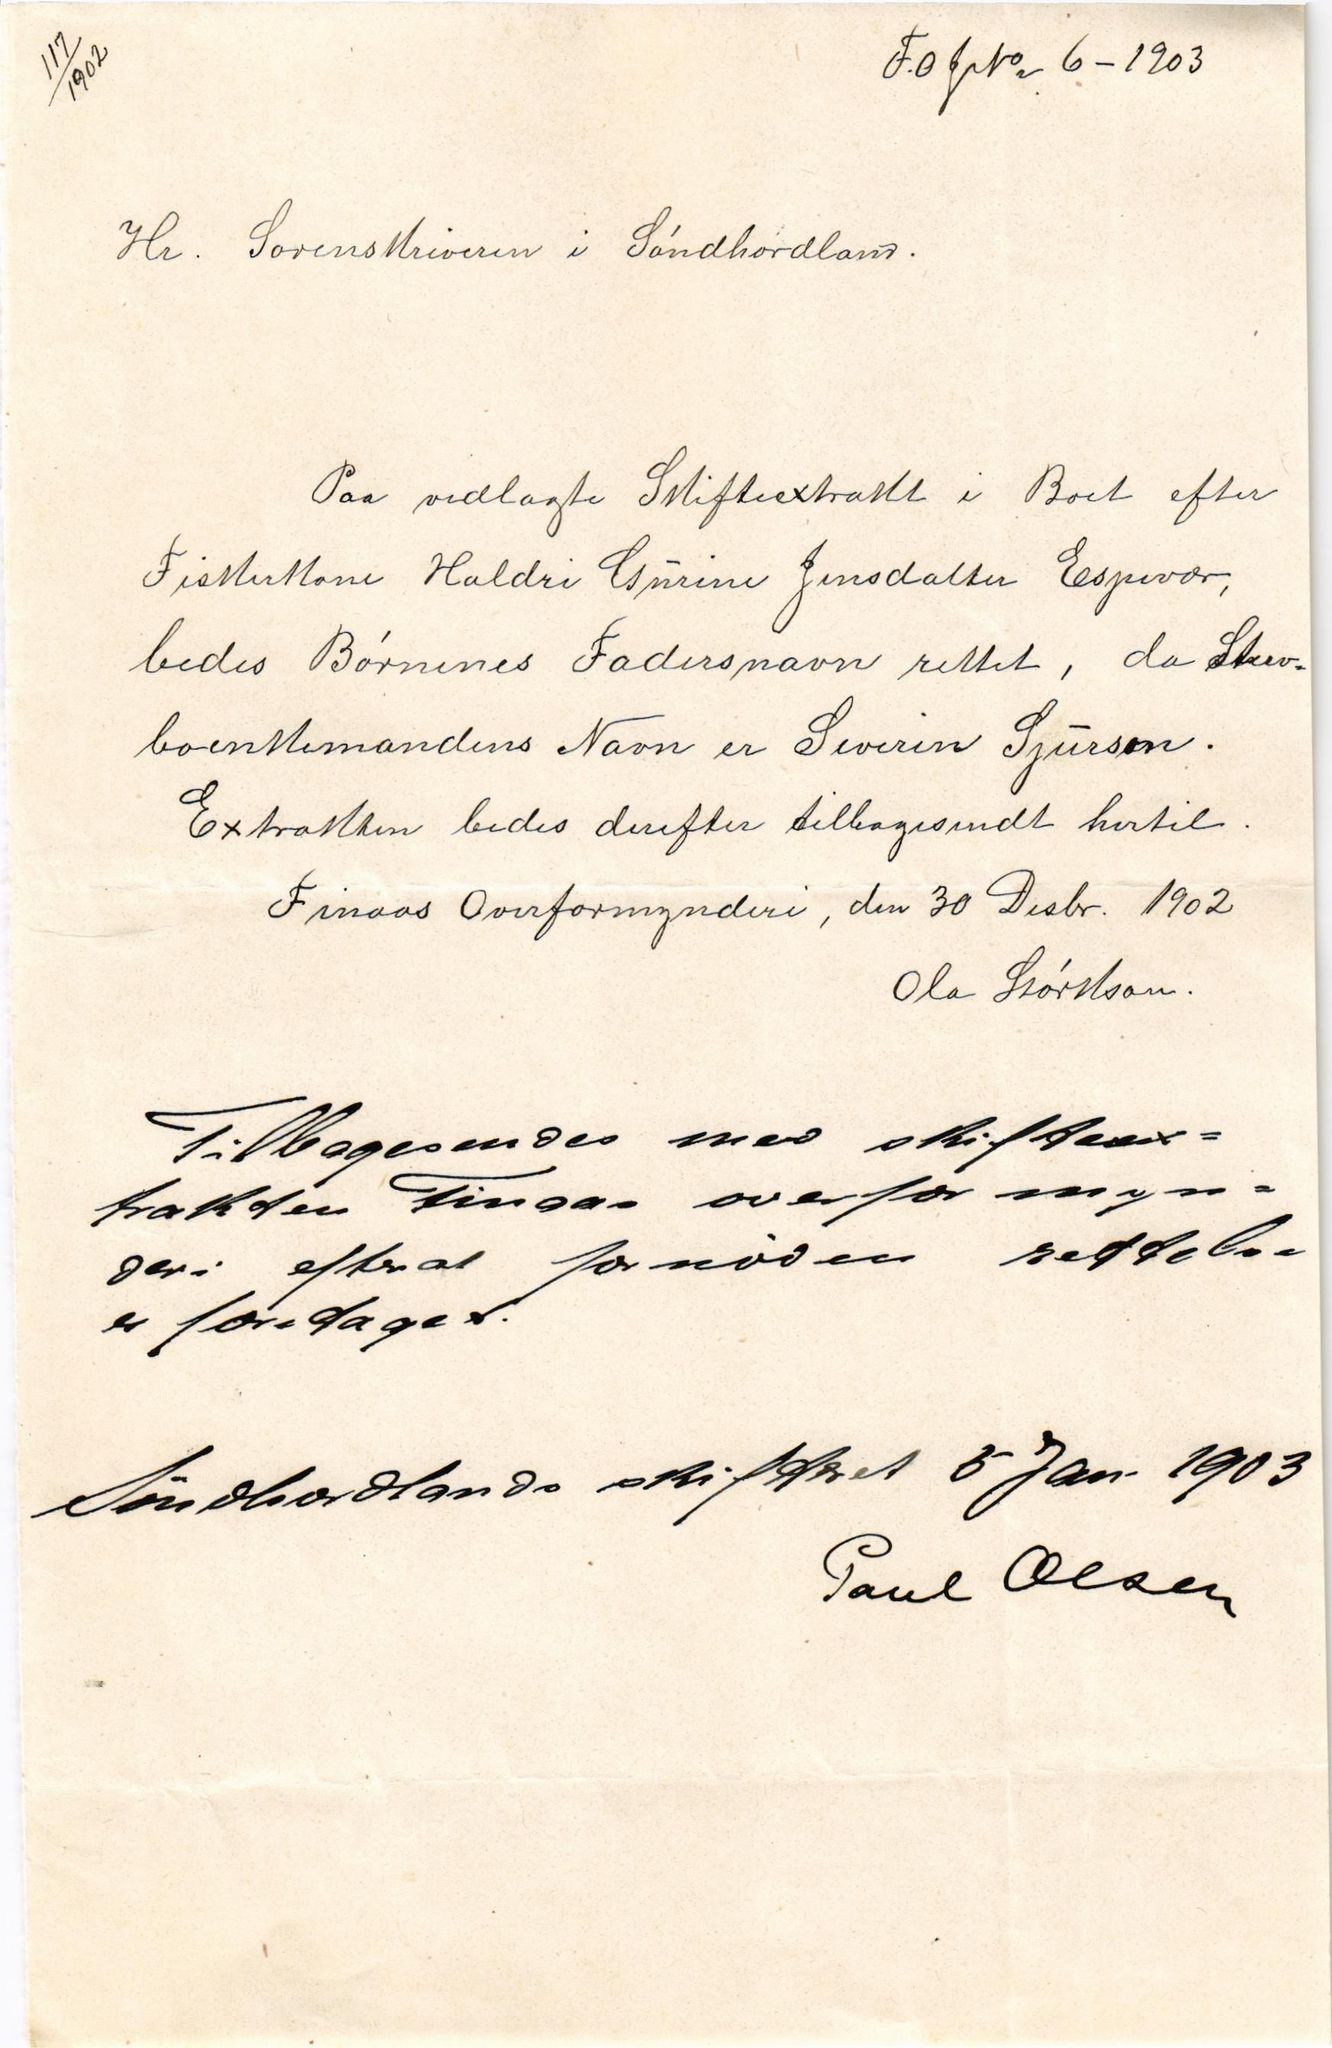 117/1902
F.O J No 6 - 1903
Hr. Sorenskriveren i Söndhordland.
Paa vedlagte Skifteextrakt i Boet efter
Fiskerkone Haldri Gurine Jensdatter Espevær,
bedes Börnenes Fadersnavn rettet, da Sterv-
boenkemandens Navn er Severin Sjursen.
Extrakten bedes derefter tilbagesendt hertil.
Finaas Overformynderi, den 30 Desbr. 1902
Ola Störkson.
Tilbagesendes med skifteex-
trakten Finaas overformyn-
deri efterat fornöden rettelse
er foretaget.
Söndhordlands skifteret 5 Jan 1903
Paul Olsen